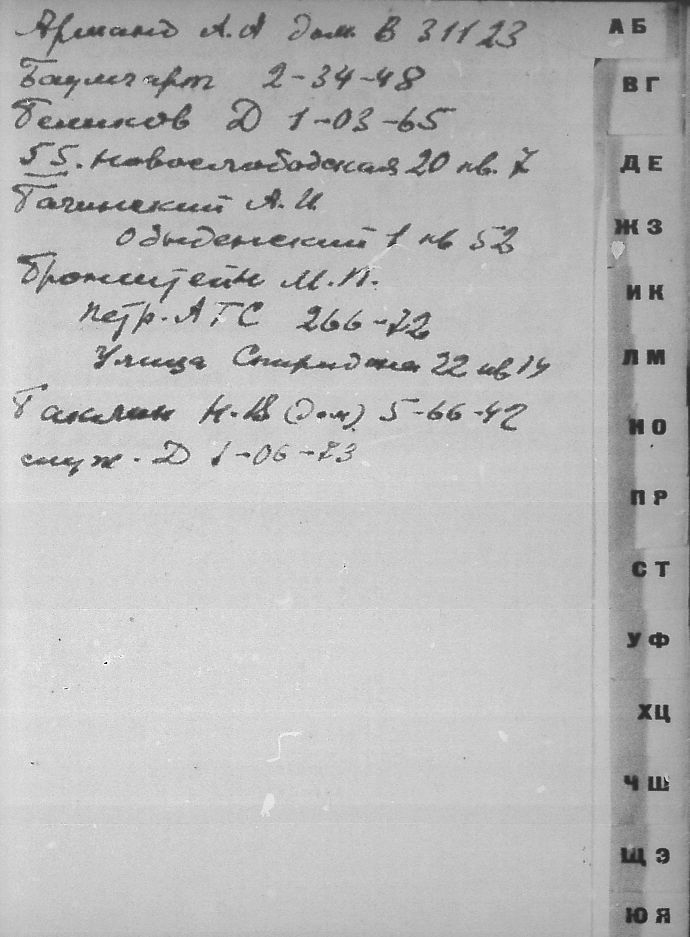 Арманд А.А дом. В 31123
Баумгарт 2-34-48
Беликов Д 1-03-65
55. Новослободская 20 кв. 7
Бачинский А.И.
Обыденский 1 кв 52
Бронштейн М.П.
Петр. АТС 266-72
Улица 22 кв 14
Баклин Н.В (дом) 5-66-42
служ. Д 1-06-73
АБ
ВГ
ДЕ
ЖЗ
ИК
ЛМ
НО
ПР
СТ
УФ
ХЦ
ЧШ
ЩЭ
ЮЯ